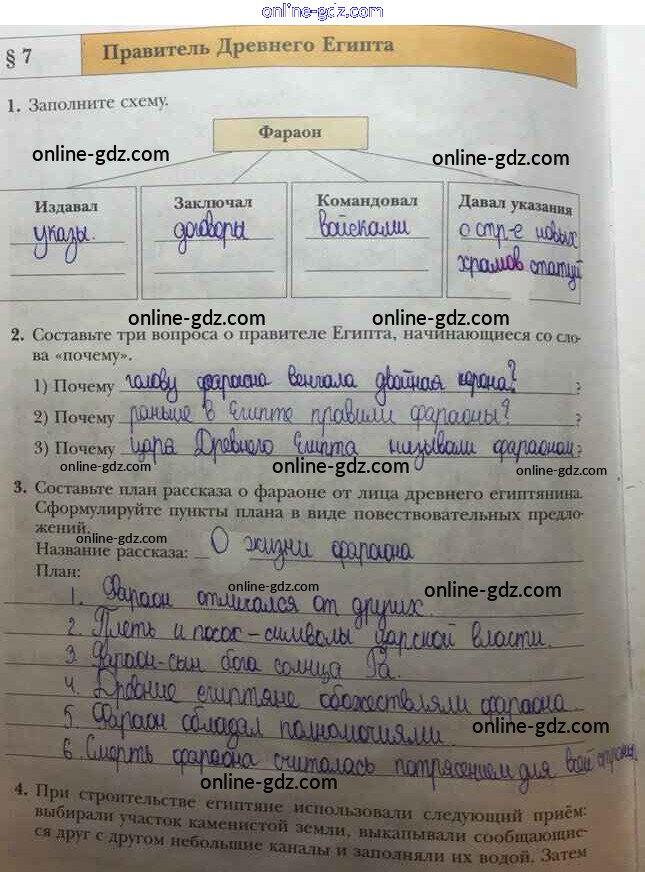 online-gdz.com
§ 7 Правитель Древнего Египта
1. Заполните схему.
Фараон
online-gdz.com online-gdz.com
Издавал Заключал Командовал Давал указания
указы. договоры войсками о стр-е новых
храмов статуй
online-gdz.com online-gdz.com
2. Составьте три вопроса о правителе Египта, начинающиеся со сло-
ва «почему».
1) Почему голову фараона венчала двойная корона? ?
2) Почему раньше в Египте правили фараоны? ?
3) Почему царя Древнего Египта называли фараоном ?
online-gdz.com online-gdz.com online-gdz.com
3. Составьте план рассказа о фараоне от лица древнего египтянина.
Сформулируйте пункты плана в виде повествовательных предло-
жений.
Название рассказа: О жизни фараона
online-gdz.com
План:
online-gdz.com online-gdz.com
1. Фараон отличался от других.
2. Плеть и посох - символы царской власти.
3. Фараон-сын бога солнца Ра.
4. Древние египтяне обожествляли фараона.
5. Фараон обладал полномочиями.
online-gdz.com
6. Смерть фараона считалась потрясением для всей страны.
online-gdz.com
4. При строительстве египтяне использовали следующий приём:
выбирали участок каменистой земли, выкапывали сообщающие-
ся друг с другом небольшие каналы и заполняли их водой. Затем